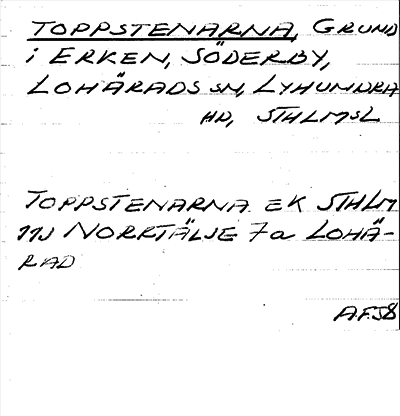 TOPPSTENARNA, GRUND
i ERKEN, SÖDERBY,
LOHÄRADS SN, LYHUNDRA
HD, STHLMSL
TOPPSTENARNA EK STHLM
11J NORRTÄLJE 7a LOHÄ-
RAD
A.F.58